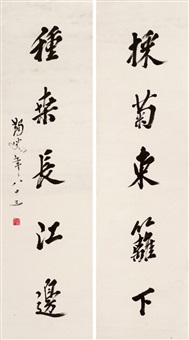 採菊東籬下
種桑長江邊
年八十三